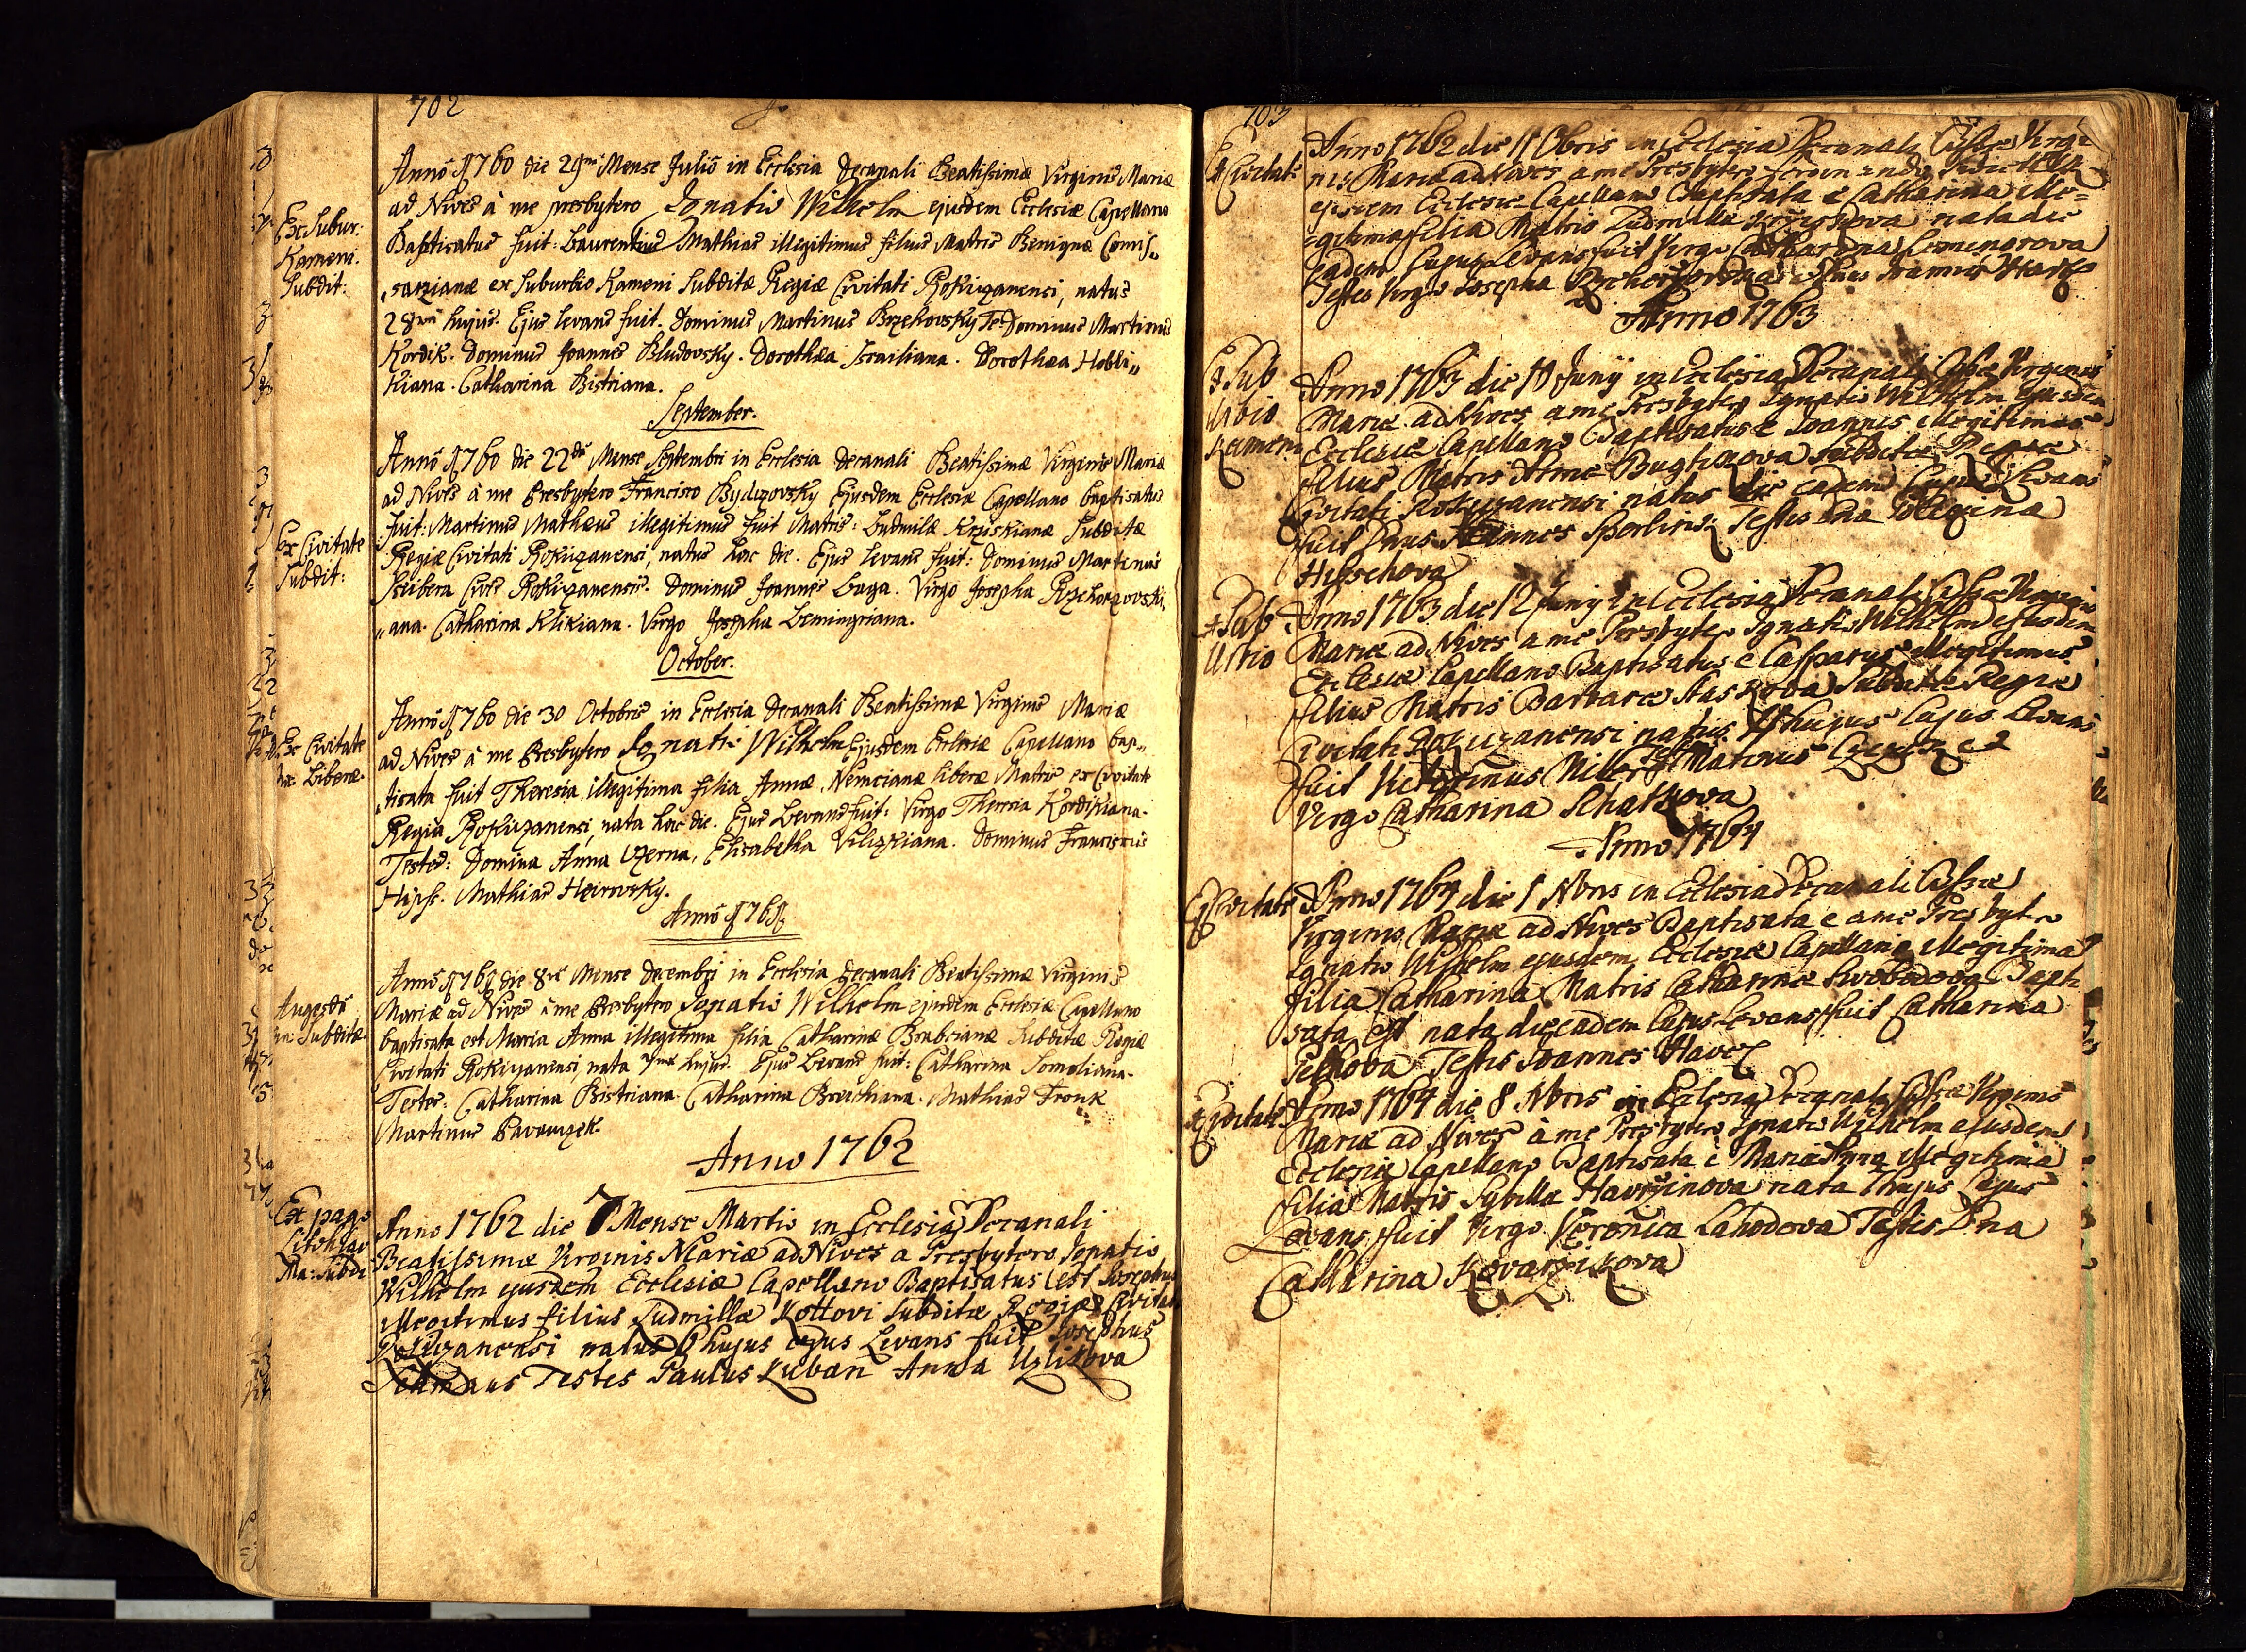 702
Ex Subur:
Kameni.
Subdit:
Anno 1760 die 29na Mense Julio in Ecclesia Decanali Beatissimæ Virginis Mariæ
ad Nives à me presbytero Ignatio Wilhelm ejusdem Ecclesiæ Capellano
Baptisatus fuit: Laurentius Mathias illegitimus filius Matris Benignæ Comis„
„sarzianæ ex Suburbio Kameni Subditæ Regiæ Civitati Rokiczanensi, natus
28va hujus. Ejus levans fuit. Dominus Martinus Brzehovsky Te: Dominus Martinus
Kordik. Dominus Joannes Bludovsky. Dorothea Israiliana. Dorothea Hobli„
Kiana. Catharina Bistriana.
September.
Ex Civitate
Subdit:
Anno 1760 die 22da Mense Septembri in Ecclesia Decanali Beatissimæ Virginis Mariæ
ad Nives à me Presbytero Francisco Bydzovsky Ejusdem Ecclesiæ Capellano baptisatus
fuit: Martinus Mathæus illegitimus fuit Matris: Ludmilæ Krziskianæ Subditæ
Regiæ Civitati Rokiczanensi, natus hac die. Ejus levans fuit: Dominus Martinus
Scribera Civis Rokiczanensis. Dominus Joannes Baga. Virgo Josepha Rzehorzovski„
„ana. Catharina Klikiana. Virgo Josepha Lemingriana.
October.
Ex Civitate
Liberæ.
Anno 1760 die 30 Octobris in Ecclesia Decanali Beatissimæ Virginis Mariæ
ad Nives à me Presbytero Ignatio Wilhelm Ejusdem Ecclesiæ Capellano bap„
„tisata fuit Theresia illegitima filia Annæ Nemcianæ liberæ Matris ex Civitate
Regia Rokiczanensi, nata hac die. Ejus Levans fuit: Virgo Theresia Kordikiana.
Testes: Domina Anna Uzerna, Elisabetha Vilizkiana. Dominus Franciscus
Hipsch. Mathias Heirovsky.
Anno 1761
Augezda
Subditæ.
Anno 1761 die 8va Mense Decembri in Ecclesia Decanali Beatissimæ Virginis
Mariæ ad Nives à me Presbytero Ignatio Wilhelm ejusdem Ecclesiæ Capellano
baptisata est Maria Anna illegitima filia Catharinæ Brabcianæ Subditæ Regiæ
Civitati Rokiczanensi, nata 7ma hujus. Ejus Levans fuit: Catharina Somoliana.
Testes: Catharina Bistriana. Catharina Breichiana. Mathias Fronk
Martinus Pavauzek.
Anno 1762
Ex pago
Litohlav
Ma: Subdi
Anno 1762 die 7 Mense Martio in Ecclesia Decanali
Beatissimæ Virginis Mariæ ad Nives a Presbytero Ignatio
Wilhelm ejusdem Ecclesiæ Capellano Baptisatus est Josephus
illegitimus filius Ludmillæ Kottovi Subditæ Regiæ Civitati
Rokiczanensi natus 6 hujus cujus Levans fuit Josephus
Testes Paulus Kuban Anna Uzlikova
703
Ex Civitate
Anno 1762 die 11 Obris in Ecclesia Decanali Bissæ Virgi
nis Mariæ ad Nives a me Presbytero Ferdinando
ejusdem Ecclesiæ Capellano Baptisata e Catharina ille=
gitima filia Matris Ludmilla nata die
eadem Cujus Levans fuit Virgo Catharina Lemingrova
Testes Virgo Josepha Rzehorzovska Joannes
Anno 1763
Ex Sub
urbio
Kameni
Anno 1763 die 11 Juny in Ecclesia Decanali Bissæ Virginis
Mariæ ad Nives a me Presbytero Ignatio Wilhelm ejusdem
Ecclesiæ Capellano Baptisatus e Joannes illegitimus
filius Matris Annæ Bugtikova Subditæ Regiæ
Civitati Rokiczanensi natus die eadem Cujus Levans
fuit Dnus Joannes Sperling: Testis Dna Polexina
Hipschova
Ex Sub
urbio
Anno 1763 die 12 Juny in Ecclesia Decanali Bissæ Virginis
Mariæ ad Nives a me Presbytero Ignatio Wilhelm ejusdem
Ecclesiæ Capellano Baptisatus e Casparus illegitimus
filius Matris Barbaræ Subditæ Regiæ
Civitati Rokiczanensi natus 11 hujus Cujus Levans
fuit Victorinus Miller Testes Matinus
Virgo Catharina Schatkova
Anno 1764
Ex Civitate
Anno 1764 die 1 Nbris in Ecclesia Decanali Bissæ
Virginis Mariæ ad Nives Baptisata e a me Presbytero
Ignatio Wilhelm ejusdem Ecclesiæ Capellano illegitima
filia Catharina Matris Catharinæ Swobodova Bapti
sata est nata die eadem Cujus Levans fuit Catharina
Pelkova Testis Joannes
Ex Civitate
Anno 1764 die 8 Nbris in Ecclesia Decanali Bissæ Virginis
Mariæ ad Nives à me Presbytero Ignatio Wilhelm ejusdem
Ecclesiæ Capellano Baptisata è Maria Anna illegitima
filia Matris Sybilla Havrzinova nata 7 hujus Cujus
Levans fuit Virgo Veronica Lahodova Testis Dna
Catharina Kovarzikova